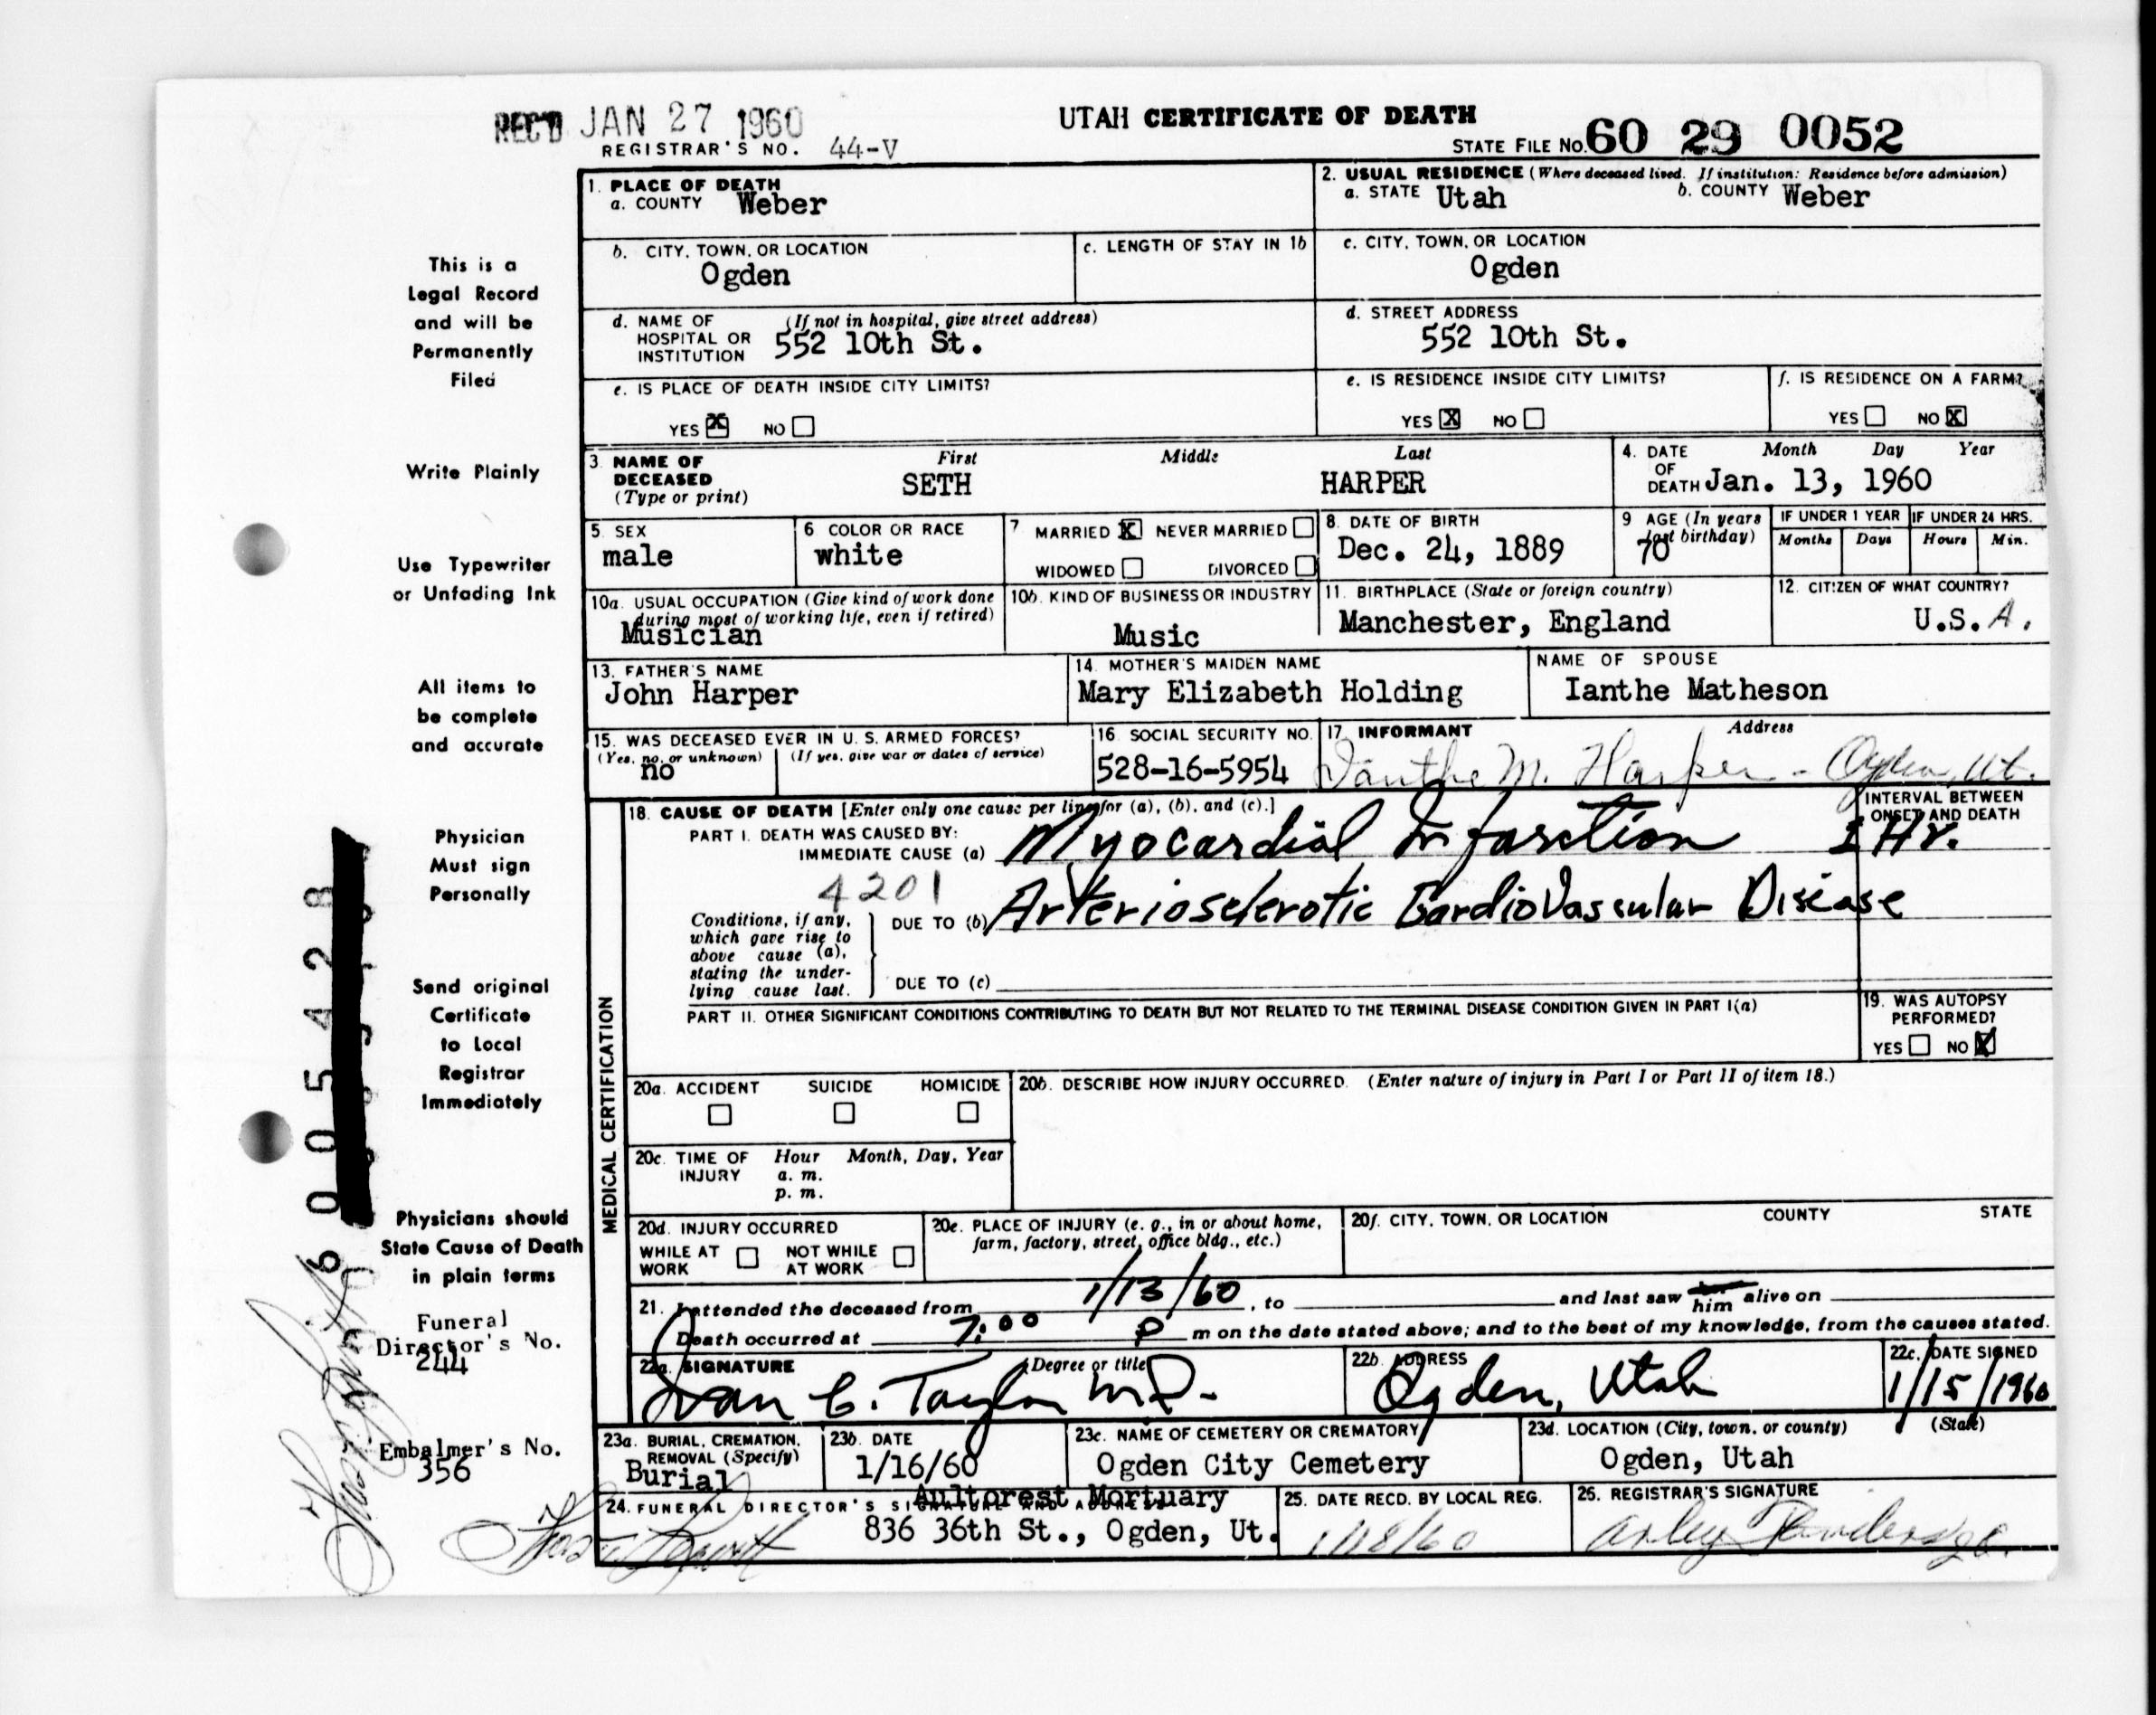 REC'D JAN 27 1960
REGISTRAR'S NO. 44-V
UTAH CERTIFICATE OF DEATH
STATE FILE No. 60 29 0052
This is a
Legal Record
and will be
Permanently
Filed
Write Plainly
Use Typewriter
or Unfading Ink
All items to
be complete
and accurate
Physician
Must sign
Personally
Send original
Certificate
to Local
Registrar
Immediately
Physicians should
State Cause of Death
in plain terms
Funeral
Director's No.
244
Embalmer's No.
356
6 0 0 5 4 2 8
1. PLACE OF DEATH
a. COUNTY Weber
2. USUAL RESIDENCE (Where deceased lived. If institution: Residence before admission)
a. STATE Utah b. COUNTY Weber
b. CITY, TOWN, OR LOCATION
Ogden
c. LENGTH OF STAY IN 1b
c. CITY, TOWN, OR LOCATION
Ogden
d. NAME OF (If not in hospital, give street address)
HOSPITAL OR
INSTITUTION 552 10th St.
d. STREET ADDRESS
552 10th St.
e. IS PLACE OF DEATH INSIDE CITY LIMITS?
YES X NO
e. IS RESIDENCE INSIDE CITY LIMITS?
YES X NO
f. IS RESIDENCE ON A FARM?
YES NO X
3. NAME OF
DECEASED
(Type or print)
First Middle Last
SETH HARPER
4. DATE OF DEATH Month Day Year
Jan. 13, 1960
5. SEX
male
6 COLOR OR RACE
white
7 MARRIED X NEVER MARRIED
WIDOWED DIVORCED
8. DATE OF BIRTH
Dec. 24, 1889
9 AGE (In years
last birthday)
70
IF UNDER 1 YEAR
Months Days
IF UNDER 24 HRS.
Hours Min.
10a. USUAL OCCUPATION (Give kind of work done
during most of working life, even if retired)
Musician
10b. KIND OF BUSINESS OR INDUSTRY
Music
11. BIRTHPLACE (State or foreign country)
Manchester, England
12. CITIZEN OF WHAT COUNTRY?
U.S.A.
13. FATHER'S NAME
John Harper
14. MOTHER'S MAIDEN NAME
Mary Elizabeth Holding
NAME OF SPOUSE
Ianthe Matheson
15. WAS DECEASED EVER IN U. S. ARMED FORCES?
(Yes, no, or unknown) (If yes, give war or dates of service)
no
16 SOCIAL SECURITY NO.
528-16-5954
17. INFORMANT Address
Ianthe M. Harper - Ogden, Ut.
MEDICAL CERTIFICATION
18. CAUSE OF DEATH [Enter only one cause per line for (a), (b), and (c).]
PART I. DEATH WAS CAUSED BY:
IMMEDIATE CAUSE (a) Myocardial Infarction
INTERVAL BETWEEN
ONSET AND DEATH
1 Hr.
4201
Conditions, if any,
which gave rise to
above cause (a),
stating the under-
lying cause last.
DUE TO (b) Arteriosclerotic CardioVascular Disease
DUE TO (c)
PART II. OTHER SIGNIFICANT CONDITIONS CONTRIBUTING TO DEATH BUT NOT RELATED TO THE TERMINAL DISEASE CONDITION GIVEN IN PART I(a)
19. WAS AUTOPSY
PERFORMED?
YES NO X
20a. ACCIDENT SUICIDE HOMICIDE
20b. DESCRIBE HOW INJURY OCCURRED. (Enter nature of injury in Part I or Part II of item 18.)
20c. TIME OF INJURY Hour Month, Day, Year
a. m.
p. m.
20d. INJURY OCCURRED
WHILE AT WORK NOT WHILE AT WORK
20e. PLACE OF INJURY (e. g., in or about home,
farm, factory, street, office bldg., etc.)
20f. CITY, TOWN, OR LOCATION COUNTY STATE
21. I attended the deceased from 1/13/60, to and last saw him alive on
Death occurred at 7:00 P m on the date stated above; and to the best of my knowledge, from the causes stated.
22a. SIGNATURE (Degree or title)
Ivan C. Taylor M.D.
22b. ADDRESS
Ogden, Utah
22c. DATE SIGNED
1/15/1960
23a. BURIAL, CREMATION,
REMOVAL (Specify)
Burial
23b. DATE
1/16/60
23c. NAME OF CEMETERY OR CREMATORY
Ogden City Cemetery
23d. LOCATION (City, town, or county) (State)
Ogden, Utah
24. FUNERAL DIRECTOR'S SIGNATURE AND ADDRESS
Aultorest Mortuary
836 36th St., Ogden, Ut.
25. DATE RECD. BY LOCAL REG.
1/18/60
26. REGISTRAR'S SIGNATURE